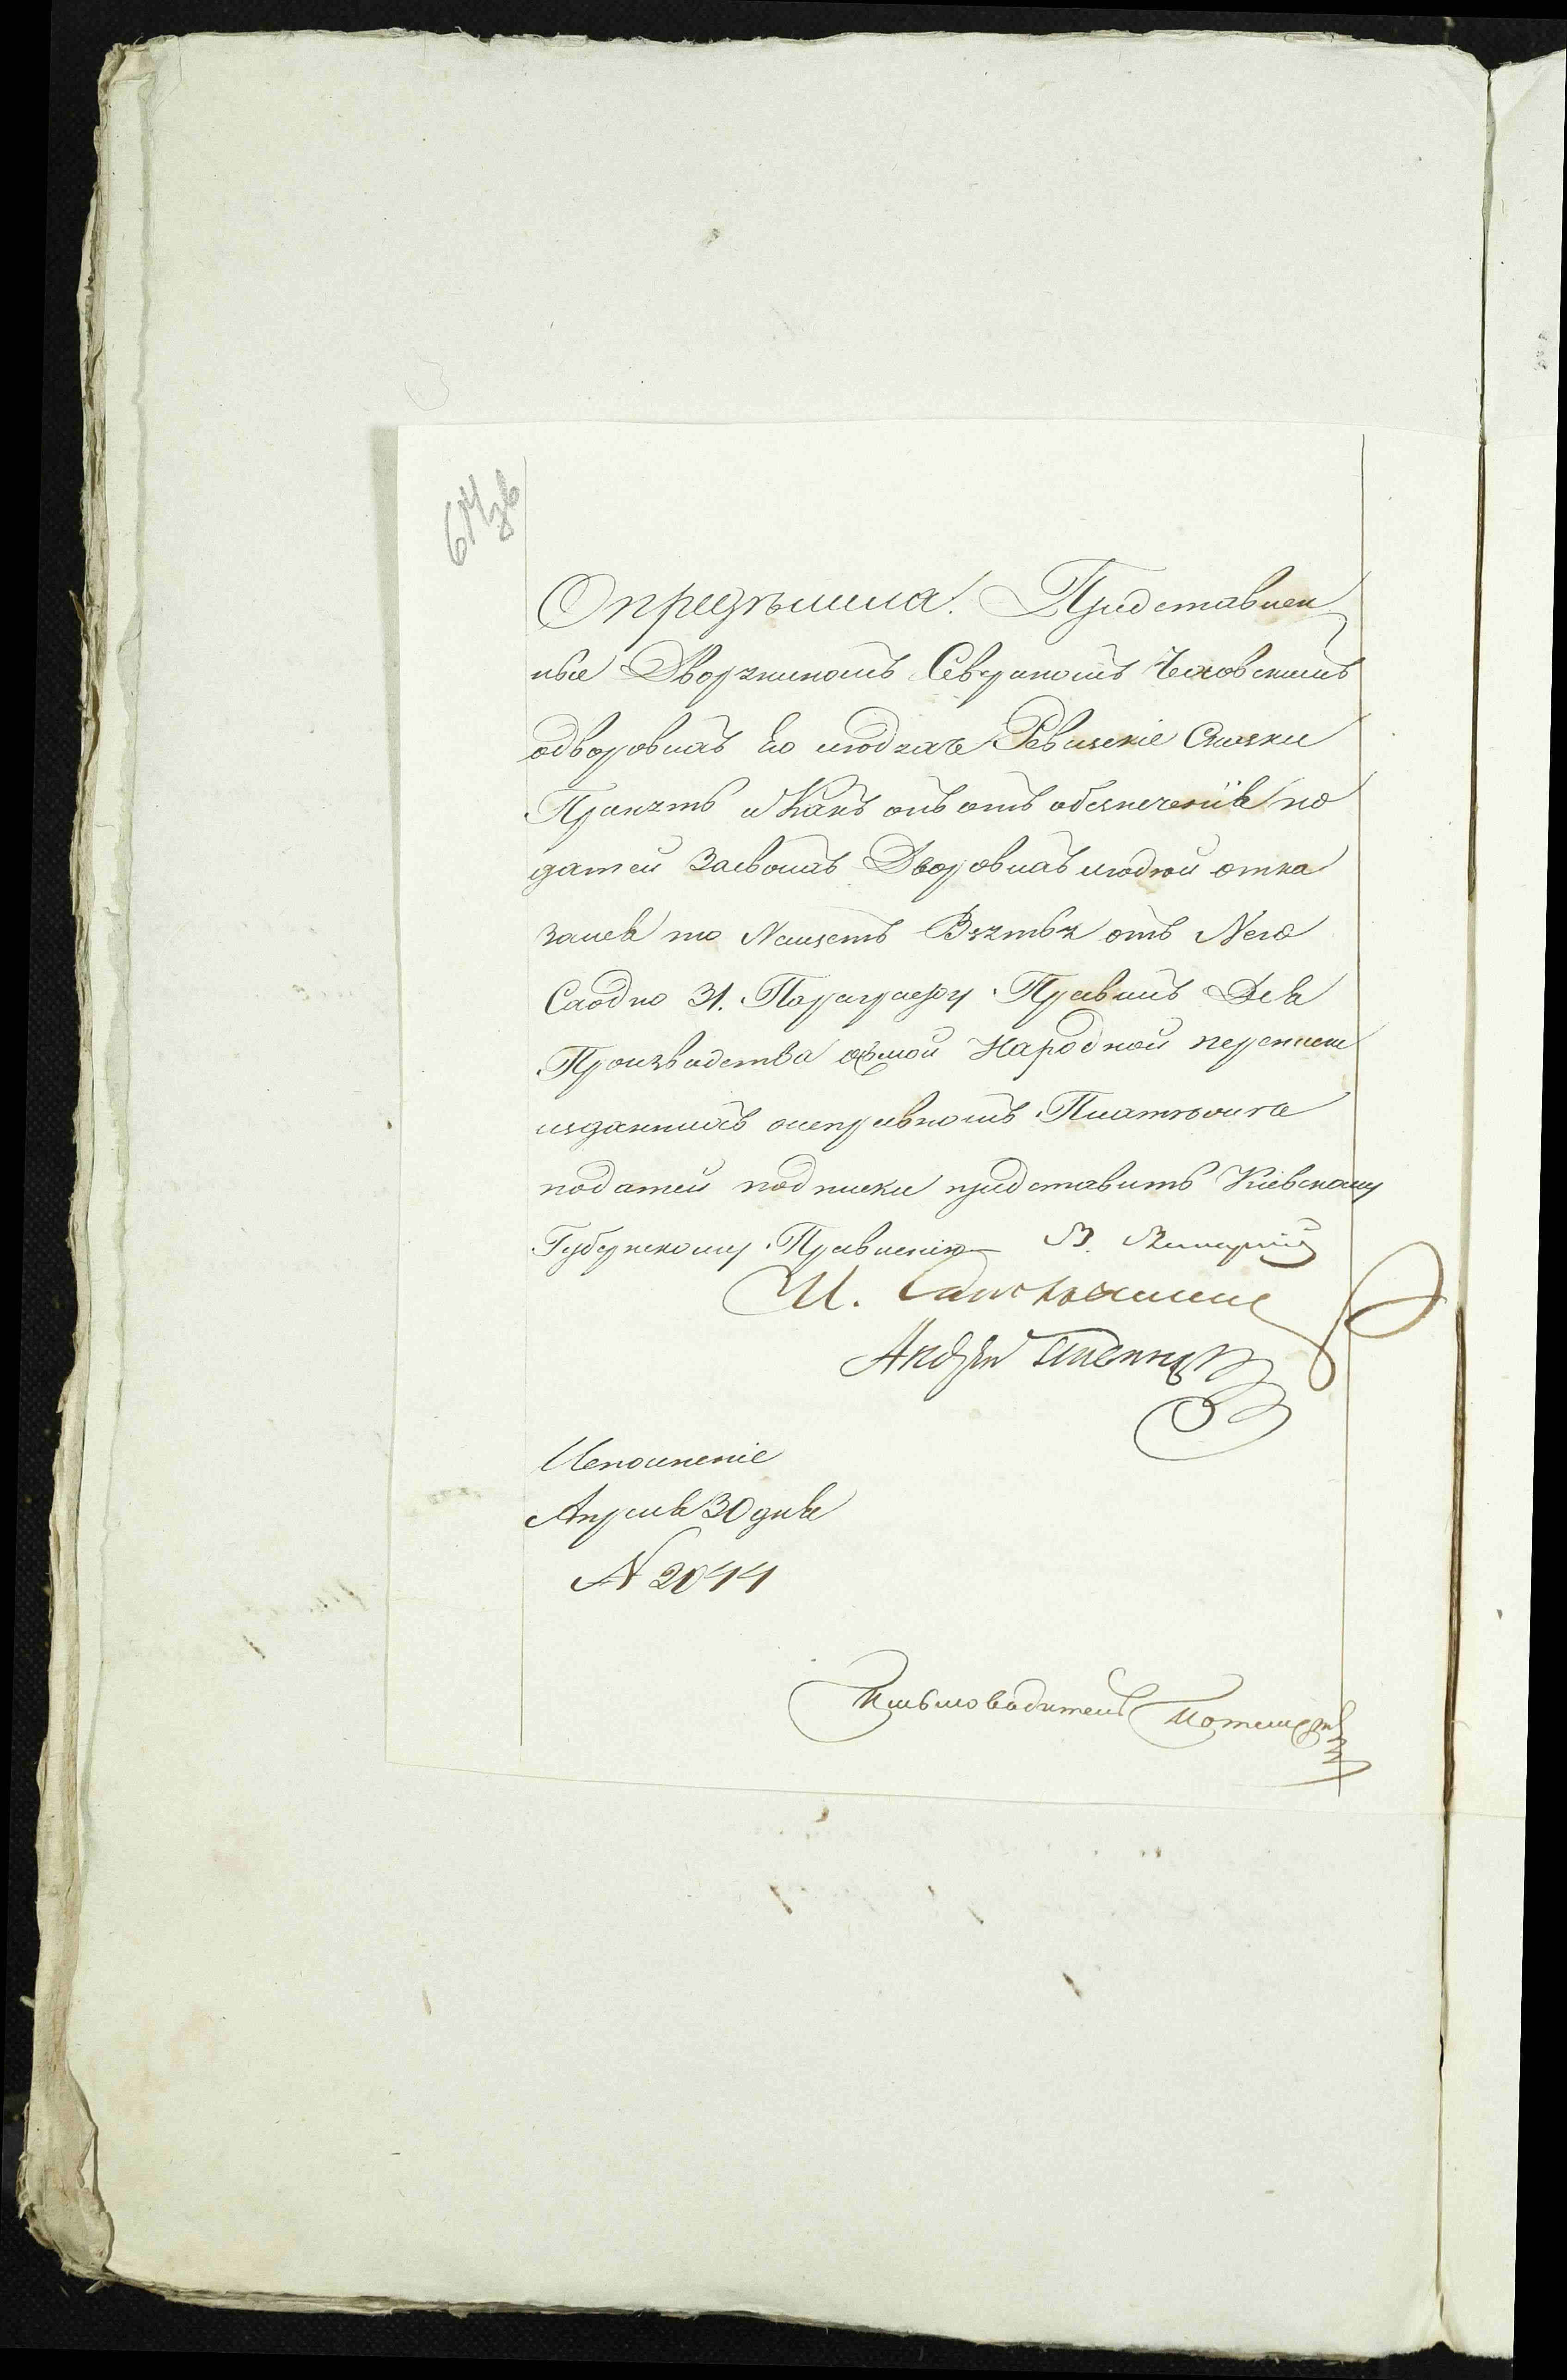 614 зв
Опредѣлила. Представлен
ные Дворяниномъ Севериномъ Чеховскимъ
одворовыхъ Его людяхъ Ревизскіе Сказки
Принять и Какъ онъ отъ обезпеченія по
датей Засвоихъ Дворовыхъ людей отка
зался то Neизлишне Взять отъ Него
Сходно 31. Параграфу Правилъ Для
Производства осьмой Народной переписи
изданныхъ оисправномъ Платежѣ
податей подписки представить Кіевскому
Губернскому Правленію
И.
Андрей
Исполненіе
Апреля 30 дня
N 2044
Письмоводитель